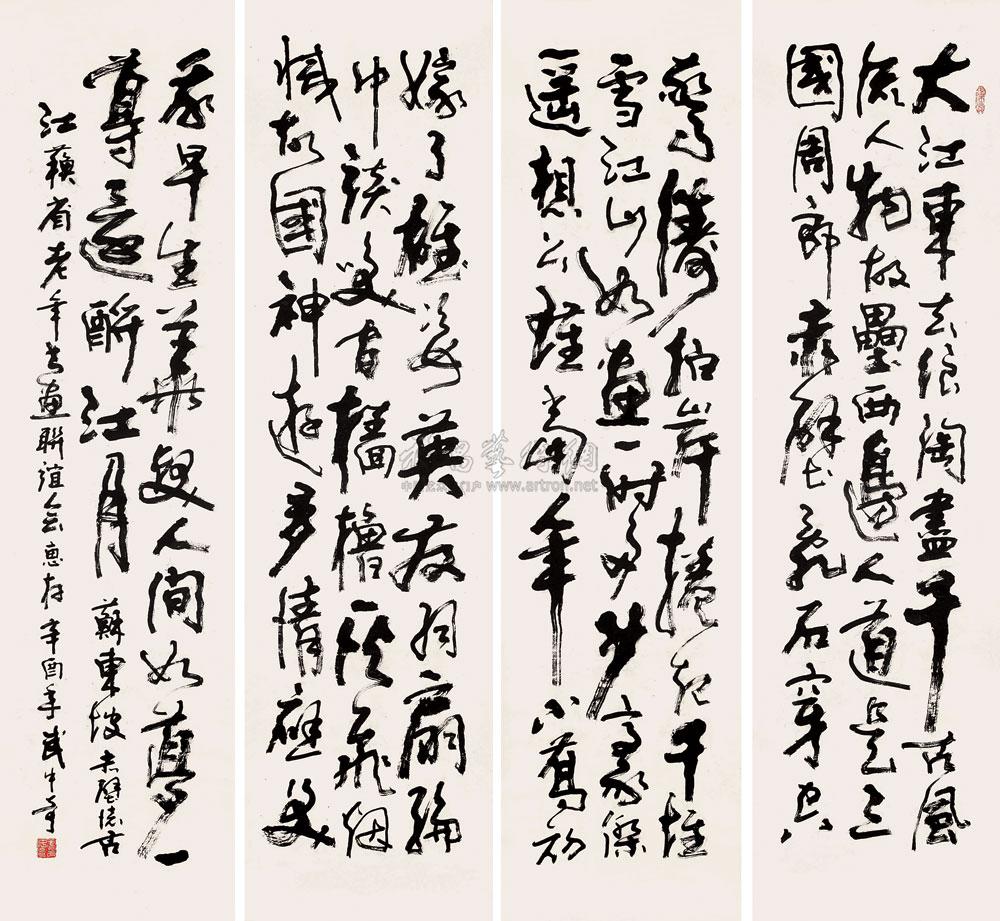 大江東去浪淘盡千古風
流人物故壘西邊人道是三
國周郎赤壁亂石穿空
驚濤拍岸捲起千堆
雪江山如畫一時多少豪傑
遙想公瑾當年小喬初
嫁了雄姿英發羽扇綸
巾談笑間檣櫓灰飛烟
滅故國神遊多情應笑
我早生華髮人間如夢一
尊還酹江月 蘇東坡赤壁懷古
江蘇省老年書畫聯誼會惠存 辛酉年武中奇
www.artron.net